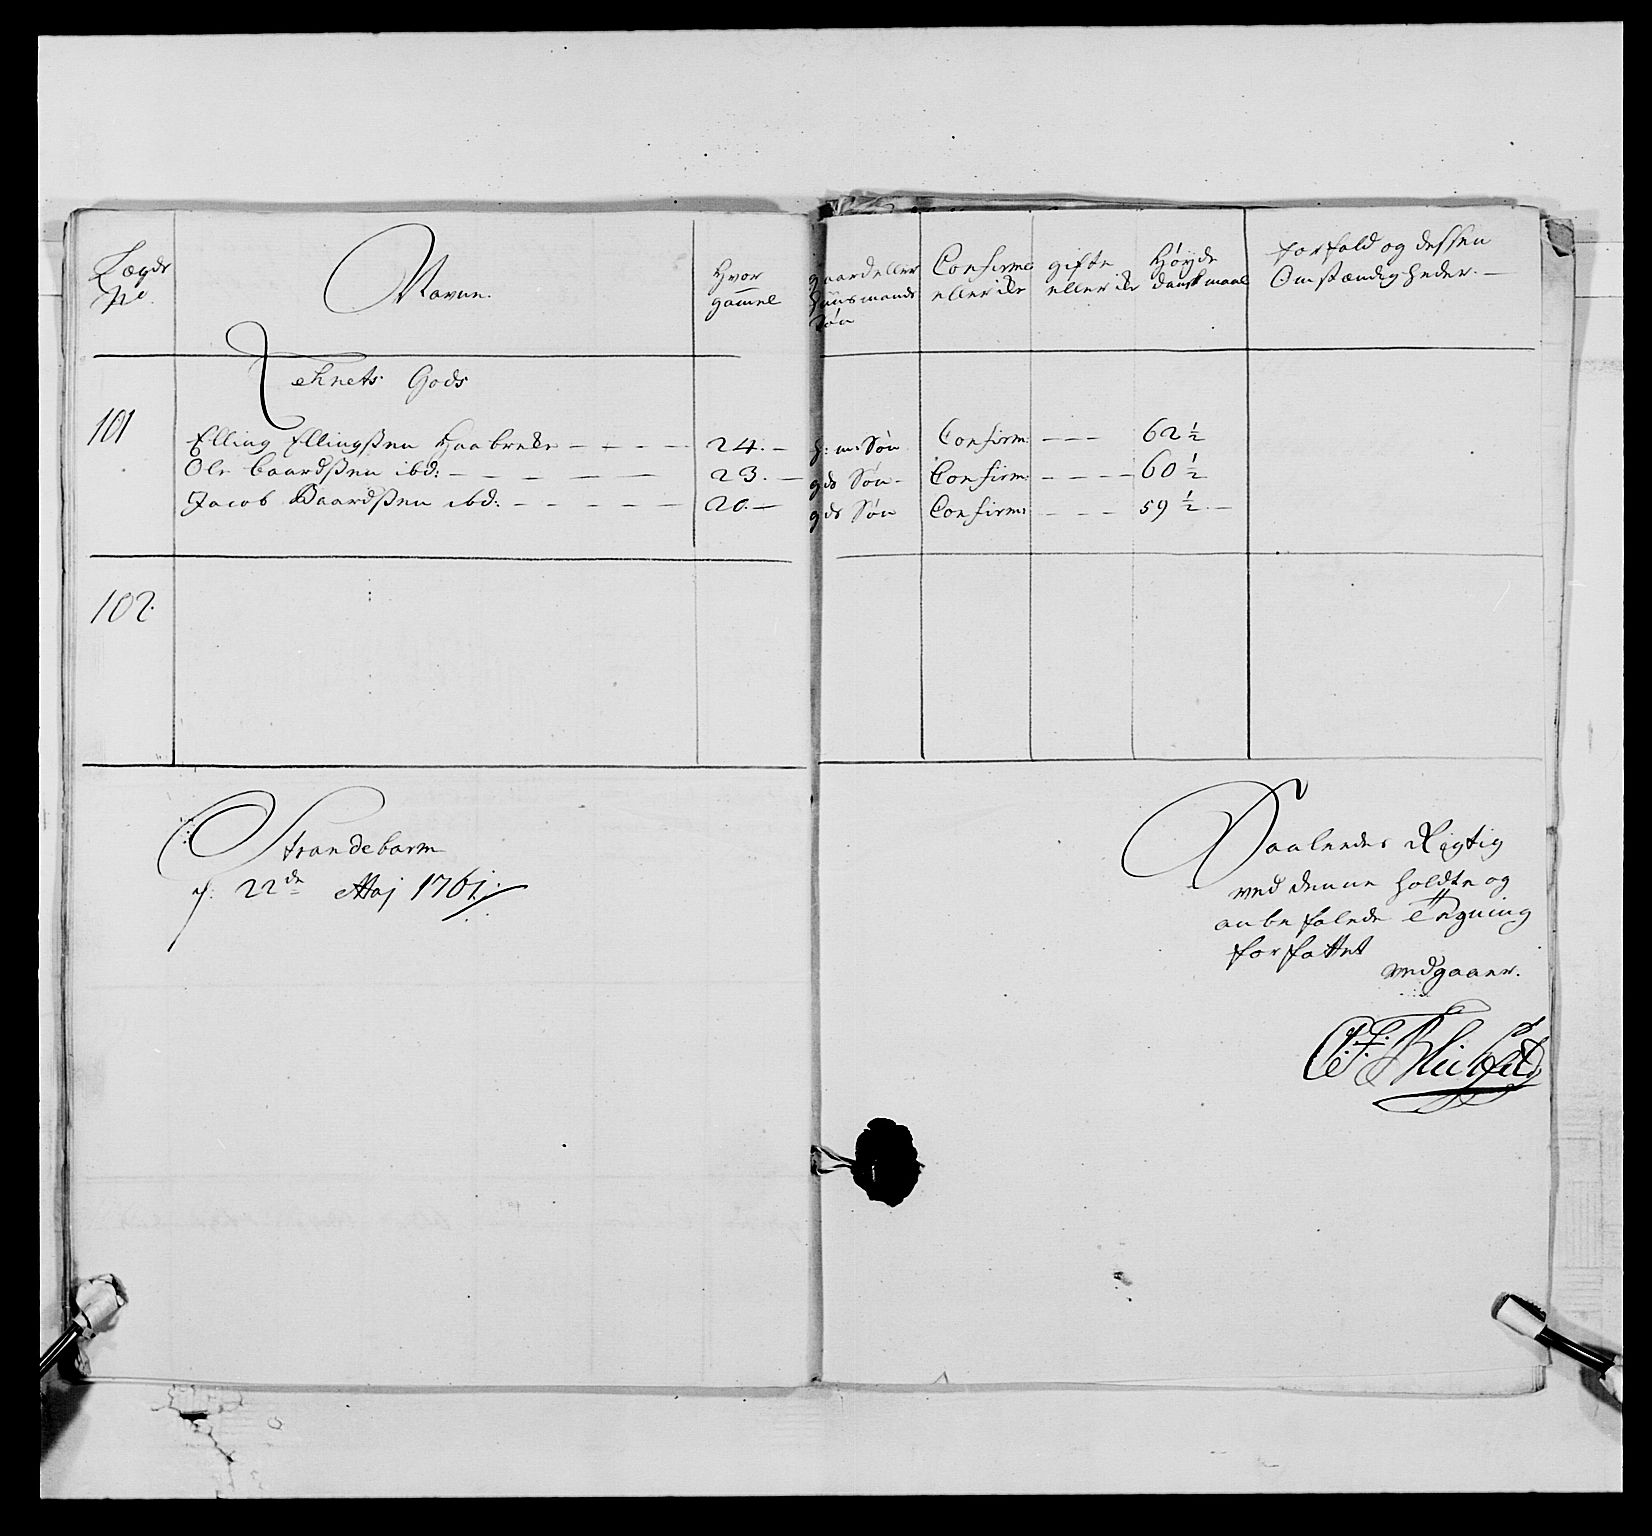 Lægds No.
Navne.
Hvor gammel
gaard eller Huusmands Søn
Confirme eller ikke
gifte eller ikke
Høyde dansk maal
Forfald og dessen Omstændigheder.
Lehnets Gods
101
Elling Ellingssen Haabrekke - - - - 24. - h: m: Søn Confirm: - - - 62 ½
Ole Baardssen ibd: - - - - - - 23. - gds Søn - Confirm: - - - - 60 ½
Jacob Baardssen ibd: - - - - - 20. - gds Søn Confirm: - - - 59 ½ -
102.
Strandebarm
d: 22de Maj 1761.
Saaleedes Rigtig
ved denne holdte og
anbefalede Tegning
forfattet
vedgaaer.